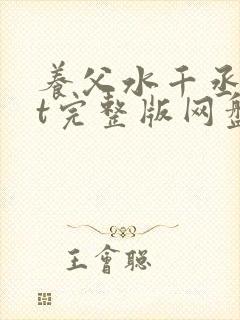 养父水千丞
t完整版网盘
王會聪